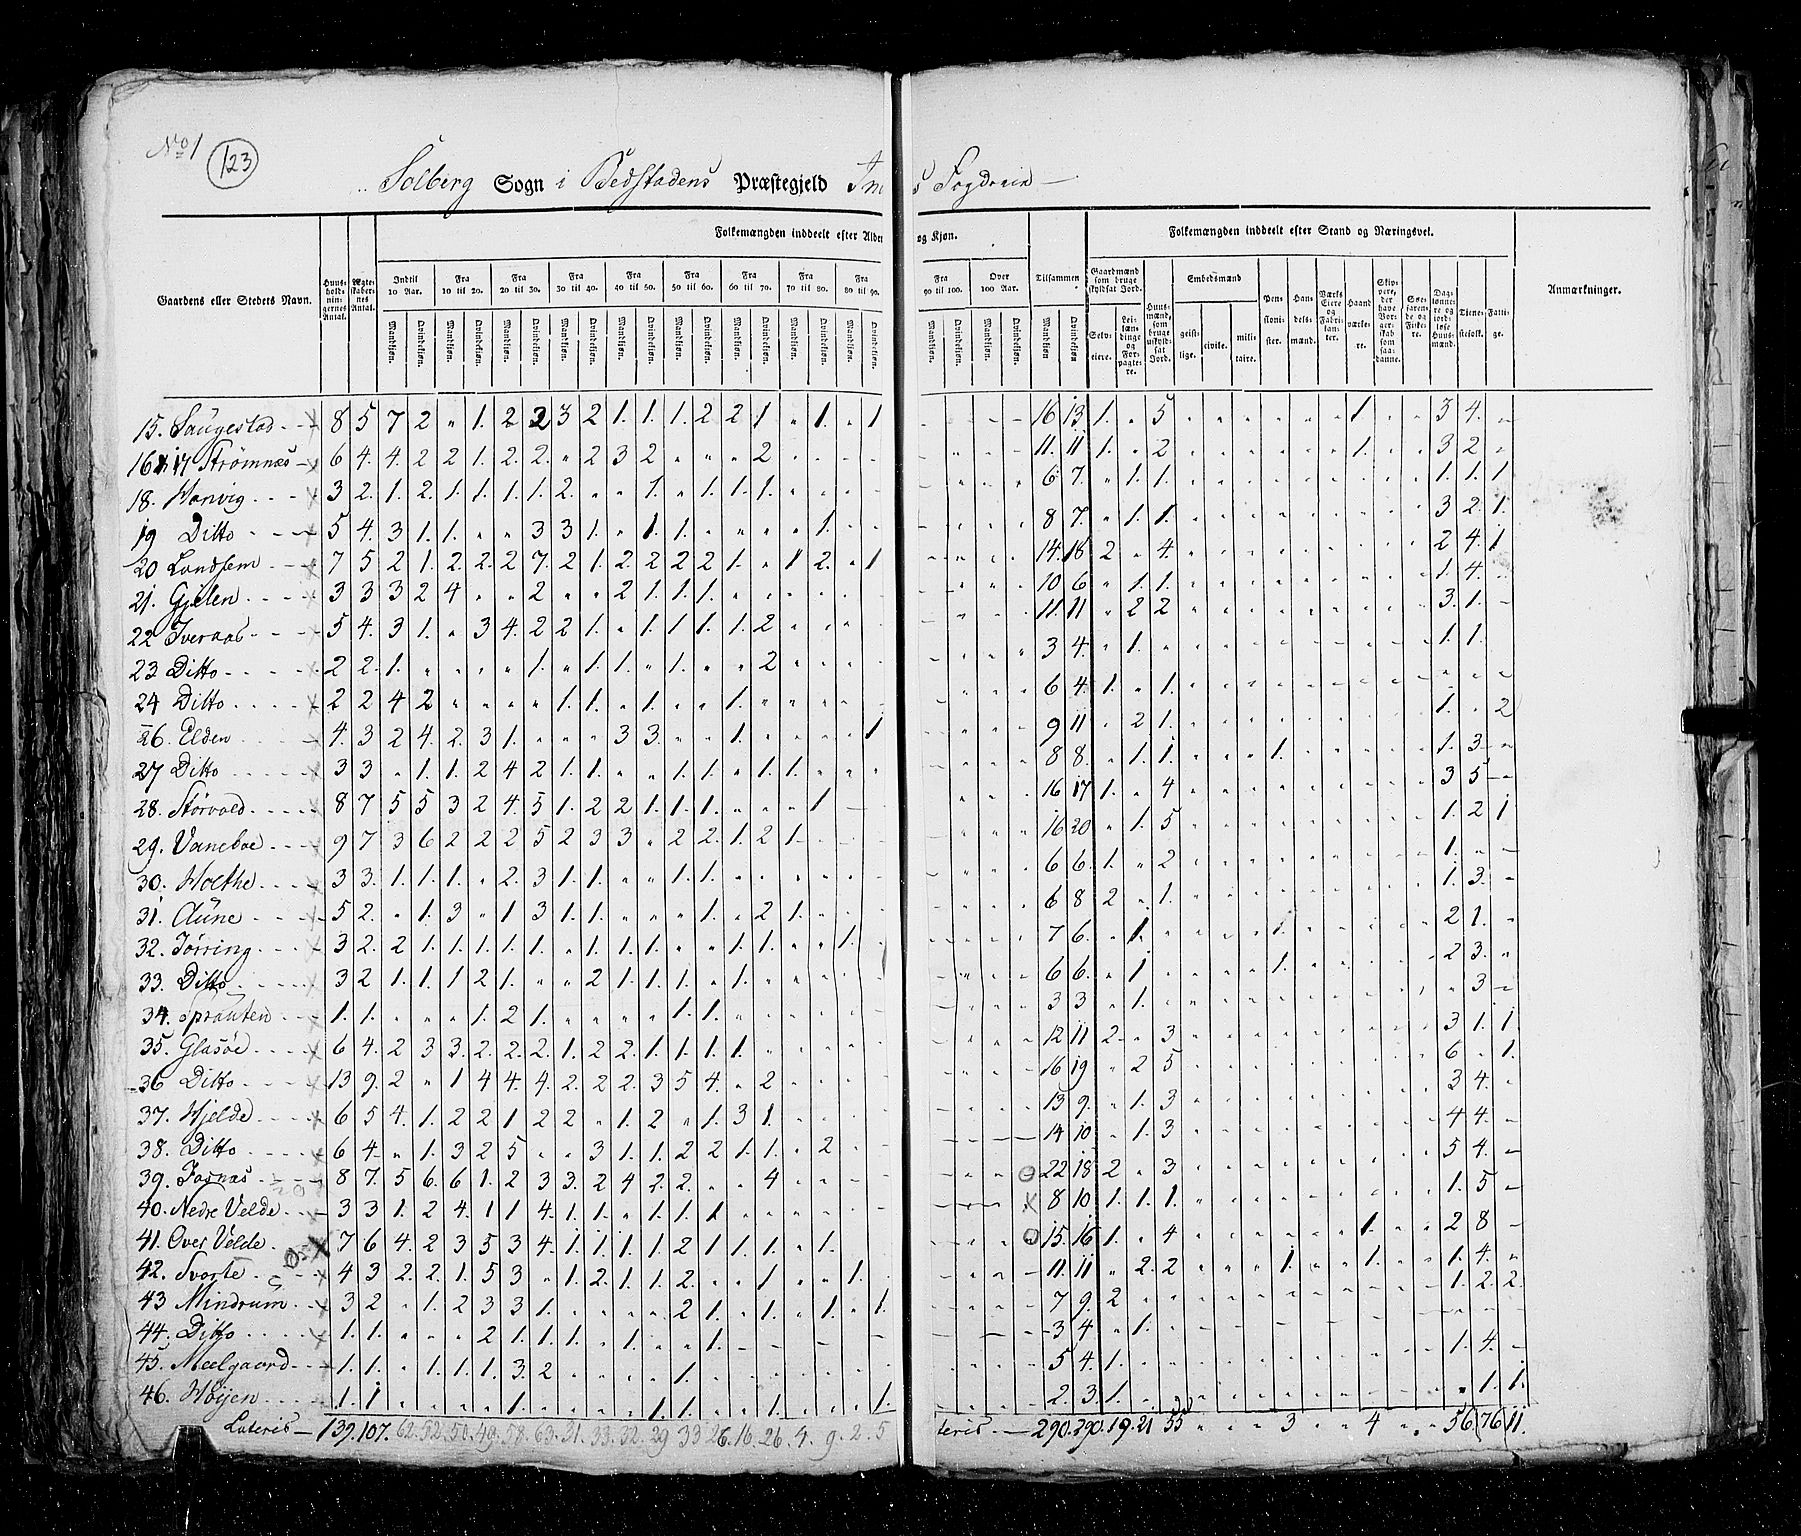 No 1
123
Solberg Sogn i Bedstadens Præstegjeld
s Fogderie
Gaardens eller Steders Navn.
Huus-holdningernes Antal.
Ægteskabernes Antal.
Folkemængden inddeelt efter Alder
og Kjøn.
Indtil 10 Aar.
Fra 10 til 20.
Fra 20 til 30.
Fra 30 til 40.
Fra 40 til 50.
Fra 50 til 60.
Fra 60 til 70.
Fra 70 til 80.
Fra 80 til 90.
Fra 90 til 100.
Over 100 Aar.
Tilsammen
Mandkjøn. Qvindekjøn.
Folkemængden inddeelt efter Stand og Næringsvei.
Gaardmænd som bruge skyldsat Jord.
Selveiere.
Leilændinge og Forpagtere.
Huusmænd, som bruge uskyldsat Jord.
Embedsmænd
geistlige. civile. militaire.
Pensionister.
Handelsmænd.
Værks Eiere og Fabrikanter.
Haandværkere.
Skippere, der have Borgerskab som saadanne.
Søefarende og Fiskere.
Daglønnere og jordløse Huusmænd.
Tjenestefolk.
Fattige.
Anmærkninger.
15. Saugestad 8 5 7 2 " 1. 2 2 3 2 1. 1. 1. 2 2 1 " 1. " 1 16 13 1. " 5 1 3 4.
16 & 17 Strømnæs 6 4. 4. 2 2 1. 2. 2. " 2 3 2 " " " 2 11. 11 1. " 2 1. 3 2
18. Harvig 3 2. 1. 2. 1. 1. 1. 1. 2. " " 1. " 1. 1. 1. 6 7. " 1. 1. 1. 1. 1
19 Ditto 5 4. 3 1. 1. " " 3 3 1. " 1. 1. " " " " 1. 8 7. " 1. 1. 3 2 1.
20 Landsem 7 5 2 1. 2 2. 2 7. 2 1. 2. 2 2 2 1. " 1 2. " 1 14. 18 2 " 4. 2 4. 1
21. Gjelen 3 3 3 2 4 " " 2 " " 2 1. 1. 1. 10 6 " 1. 1. 1. 4.
22 Iveraas 5 4. 3 1. " 3 4. 2 2 1. " 1. 1. 1. 1. 2 11. 11 " 2 2 3. 1.
23 Ditto 2 2. 1. " " " " 1. " 1. 1. " 1. " " 2 3 4. " 1. 1. 1.
24 Ditto 2 2 4 2 " " " " 1. 1. " 1. " " 1. 6 4 1. " 1.
26. Elden 4. 3 2 4. 2. 3 1. " " " 3 3. " " 1. " " " " 1 9 11 " 2 1. 1. " 2
27 Ditto 3 3 " 1. 1. 2 4 2 1. 1. " " 1. 1. " 1. 1. 8 8. " 1. 1. 1. 1. 3
28. Størvold 8 7 5 5 3 2 4. 5 1. 2 2 1. 1. 1. " " " 1 16 17 1. " 4 3 5
29. Vaneboe 9 7 3 6 2 2 2 5 2 3 3 " 2 2. 1. 2 1. 16 20 " 1. 5 1. 2 1
30. Holthe 3 3. 1. 1. 1. " 2. 3 1. 1. " " 1. 1. 6 6. 1. " 2 1.
31. Aune 5 2. " 1. 3 " 1 3 1. 1. " " " 1. " 2 1. 6 8 2 " 1. 1. 3.
32. Tørring 3 2. 2 1. 1. 1. 1. 1. " 1. 1. 1. " " 1. 1. " " 1. 7 6. " 1. 1. 2 1.
33. Ditto 3 2 1. 1. 1 2 1. " " 2 1. 1. 1. " 1. 6 6. " 1 1. 2 3.
34. Sprauten 1. 1. " " " 1. 2 1. " " " " 1. 1. 3 3 " 1. 3
35. Glasøe 6 4. 2 3 3. 2. 2. 2. 1. 2 2. 1. 1. 1. 1. 12 11 2 " 3 3 1. 1
36 Ditto 13 9. 2 " 1 4 4. 4. 2. 2 2. 3 5 4. " 2 16 19 " 2 5 6 " 1.
37. Hjelde 6 5 4. 1. 2 2 1 2 2 " 1. 2 " 1. 3 1. 13 9. " 1. 3 3 4.
38. Ditto 6 4. " 1. 3 2 5 " " 3 1. 1. 2 2 1. 1. " 2 14 10 " 1. 3 4 4.
39. Fosnæs 8 7. 5 6. 6 1. 2 3 3. 2 4 2. 2. " " 4 22 18 2 " 3 5 4.
40. Nedre Velde 3 3 1. 2 4. 1 1 4. 1. 1. " 1. 1. 1 8 10 1. 1. 1. 1. 5
41. Over Velde 7 6 4. 2 3 5 3 4. 1. 1. 1. 1. 2 1. 1. 1. " 1. 15. 16 1. " 4 1. 2 8
42. Svarte 4 3 2. 2. 1. 5 3 " 1. 2. 1. 1. 2. " " 1 " " 1. 11. 11 " 2. 2 1. 1. 1. 4.
43 Mindrum 3 2 " 1. 2 3 3 1. " " " " 2 1. " 1. " 1. " 1. 7 9. 2 1. 2. 2.
44. Ditto 1. 1. " " " 2 1. 1. 1. " 1. " " 1. 3 4 " 1.
45. Meelgaard 1. 1. " 1. 1. 1. 3. 2 " " " " 1. 5 4. 1. 1. 4.
46. Høyen 1. 1 " " " " 1. " " " " 1. 1. " " 1. " " " 1. 2. 3. 1. " 1. 1.
Lateris 139. 107. 62. 52. 50. 49. 58. 63. 31. 33. 32. 29 33 26. 16. 26. 4. 9. 2. 5
teris 290. 290. 19. 21 55 " " " 3 " " 4 " " 56. 76 11.